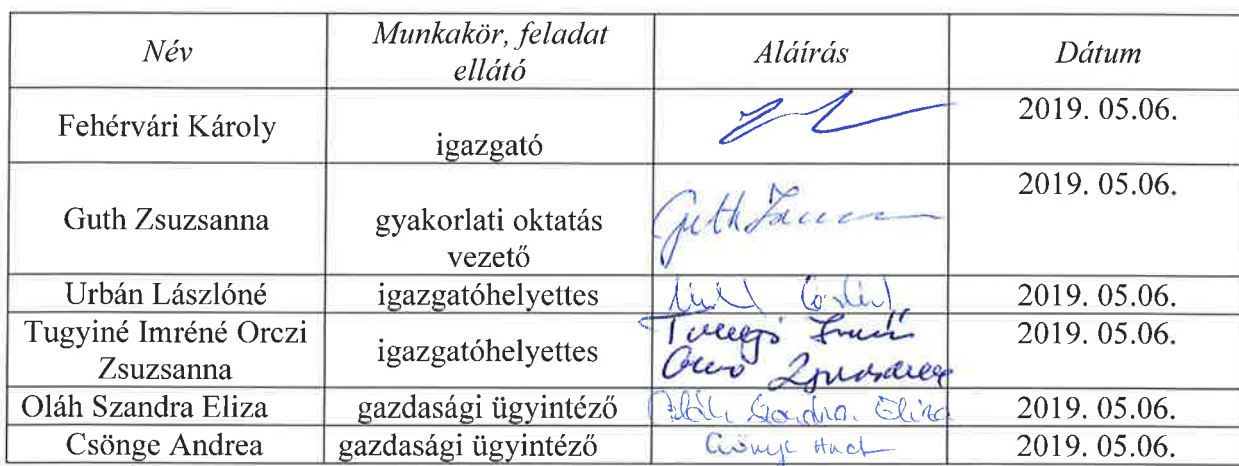 Név
Munkakör, feladat
ellátó
Aláírás
Dátum
Fehérvári Károly
igazgató
2019. 05.06.
Guth Zsuzsanna
gyakorlati oktatás
vezető
Guth
2019. 05.06.
Urbán Lászlóné
igazgatóhelyettes
2019. 05.06.
Tugyiné Imréné Orczi
Zsuzsanna
igazgatóhelyettes
2019. 05.06.
Oláh Szandra Eliza
gazdasági ügyintéző
Oláh Szandra Eliza
2019. 05.06.
Csönge Andrea
gazdasági ügyintéző
2019. 05.06.